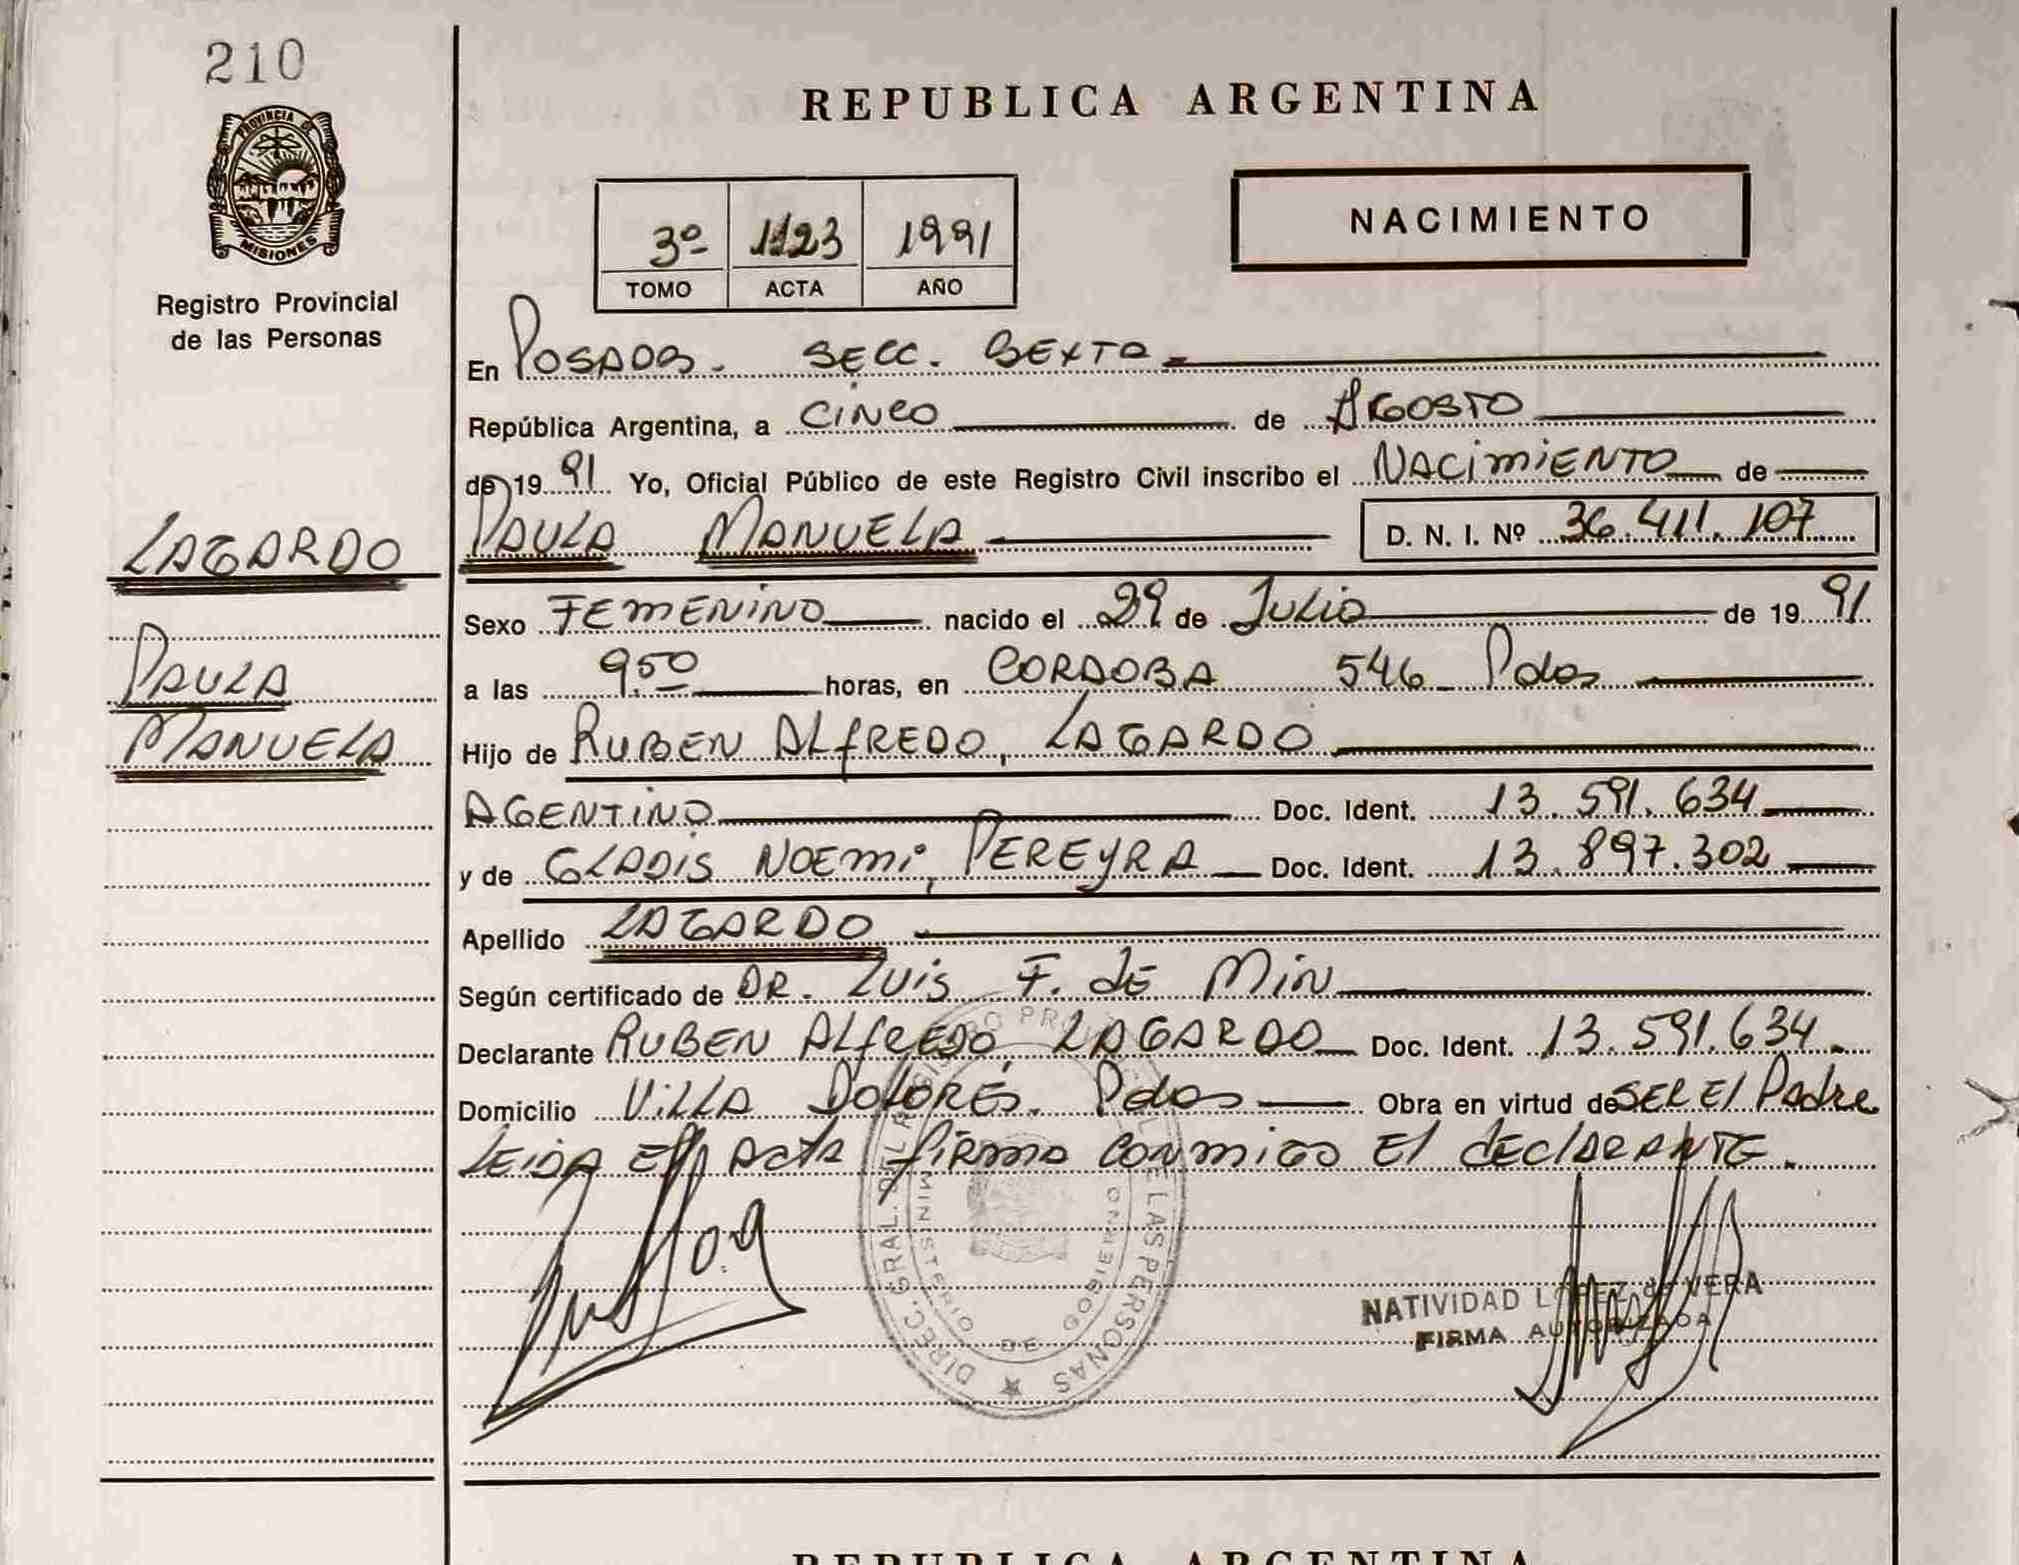 210
PROVINCIA DE
MISIONES
Registro Provincial
de las Personas
REPUBLICA ARGENTINA
3º 1123 1991
TOMO ACTA AÑO
NACIMIENTO
En POSADAS. SECC. SEXTA
República Argentina, a CINCO de AGOSTO
de 19 91 Yo, Oficial Público de este Registro Civil inscribo el NACIMIENTO de
LAGARDO PAULA MANUELA D. N. I. Nº 36.411.107
Sexo FEMENINO nacido el 29 de Julio de 19 91
PAULA a las 9,50 horas, en CORDOBA 546 Pdas
MANUELA Hijo de RUBEN ALFREDO, LAGARDO
AGENTINO Doc. Ident. 13.591.634
y de GLADIS NOEMI, PEREYRA Doc. Ident. 13.897.302
Apellido LAGARDO
Según certificado de DR. LUIS F. de MIN
Declarante RUBEN ALFREDO LAGARDO Doc. Ident. 13.591.634.
Domicilio VILLA DOLORES. Pdas Obra en virtud de SER El Padre
LEIDA El ACTA firma CONMIGO El DECLARANTE.
DIREC. GRAL. DEL REGISTRO PROVINCIAL DE LAS PERSONAS
MINISTERIO DE GOBIERNO
NATIVIDAD LOPEZ de VERA
FIRMA AUTORIZADA
REPUBLICA ARGENTINA